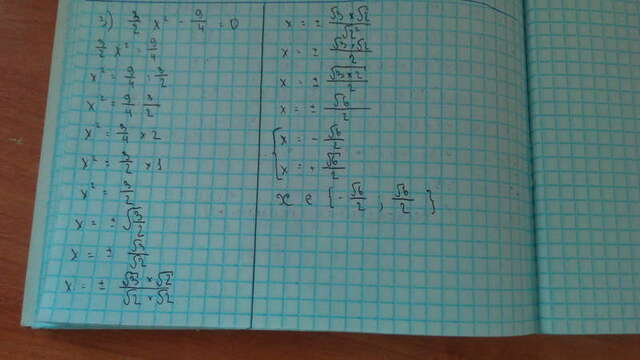 3) 3/2 x² - 9/4 = 0
3/2 x² = 9/4
x² = 9/4 : 3/2
x² = 9/4 · 3/2
x² = 3/4 × 2
x² = 3/2 × 1
x² = 3/2
x = ± √3/2
x = ± √3/√2
x = ± √3 × √2/√2 × √2
x = ± √3 × √2/√2²
x = ± √3 × √2/2
x = ± √3×2/2
x = ± √6/2
{x = - √6/2
x = + √6/2
x є {- √6/2 , √6/2}